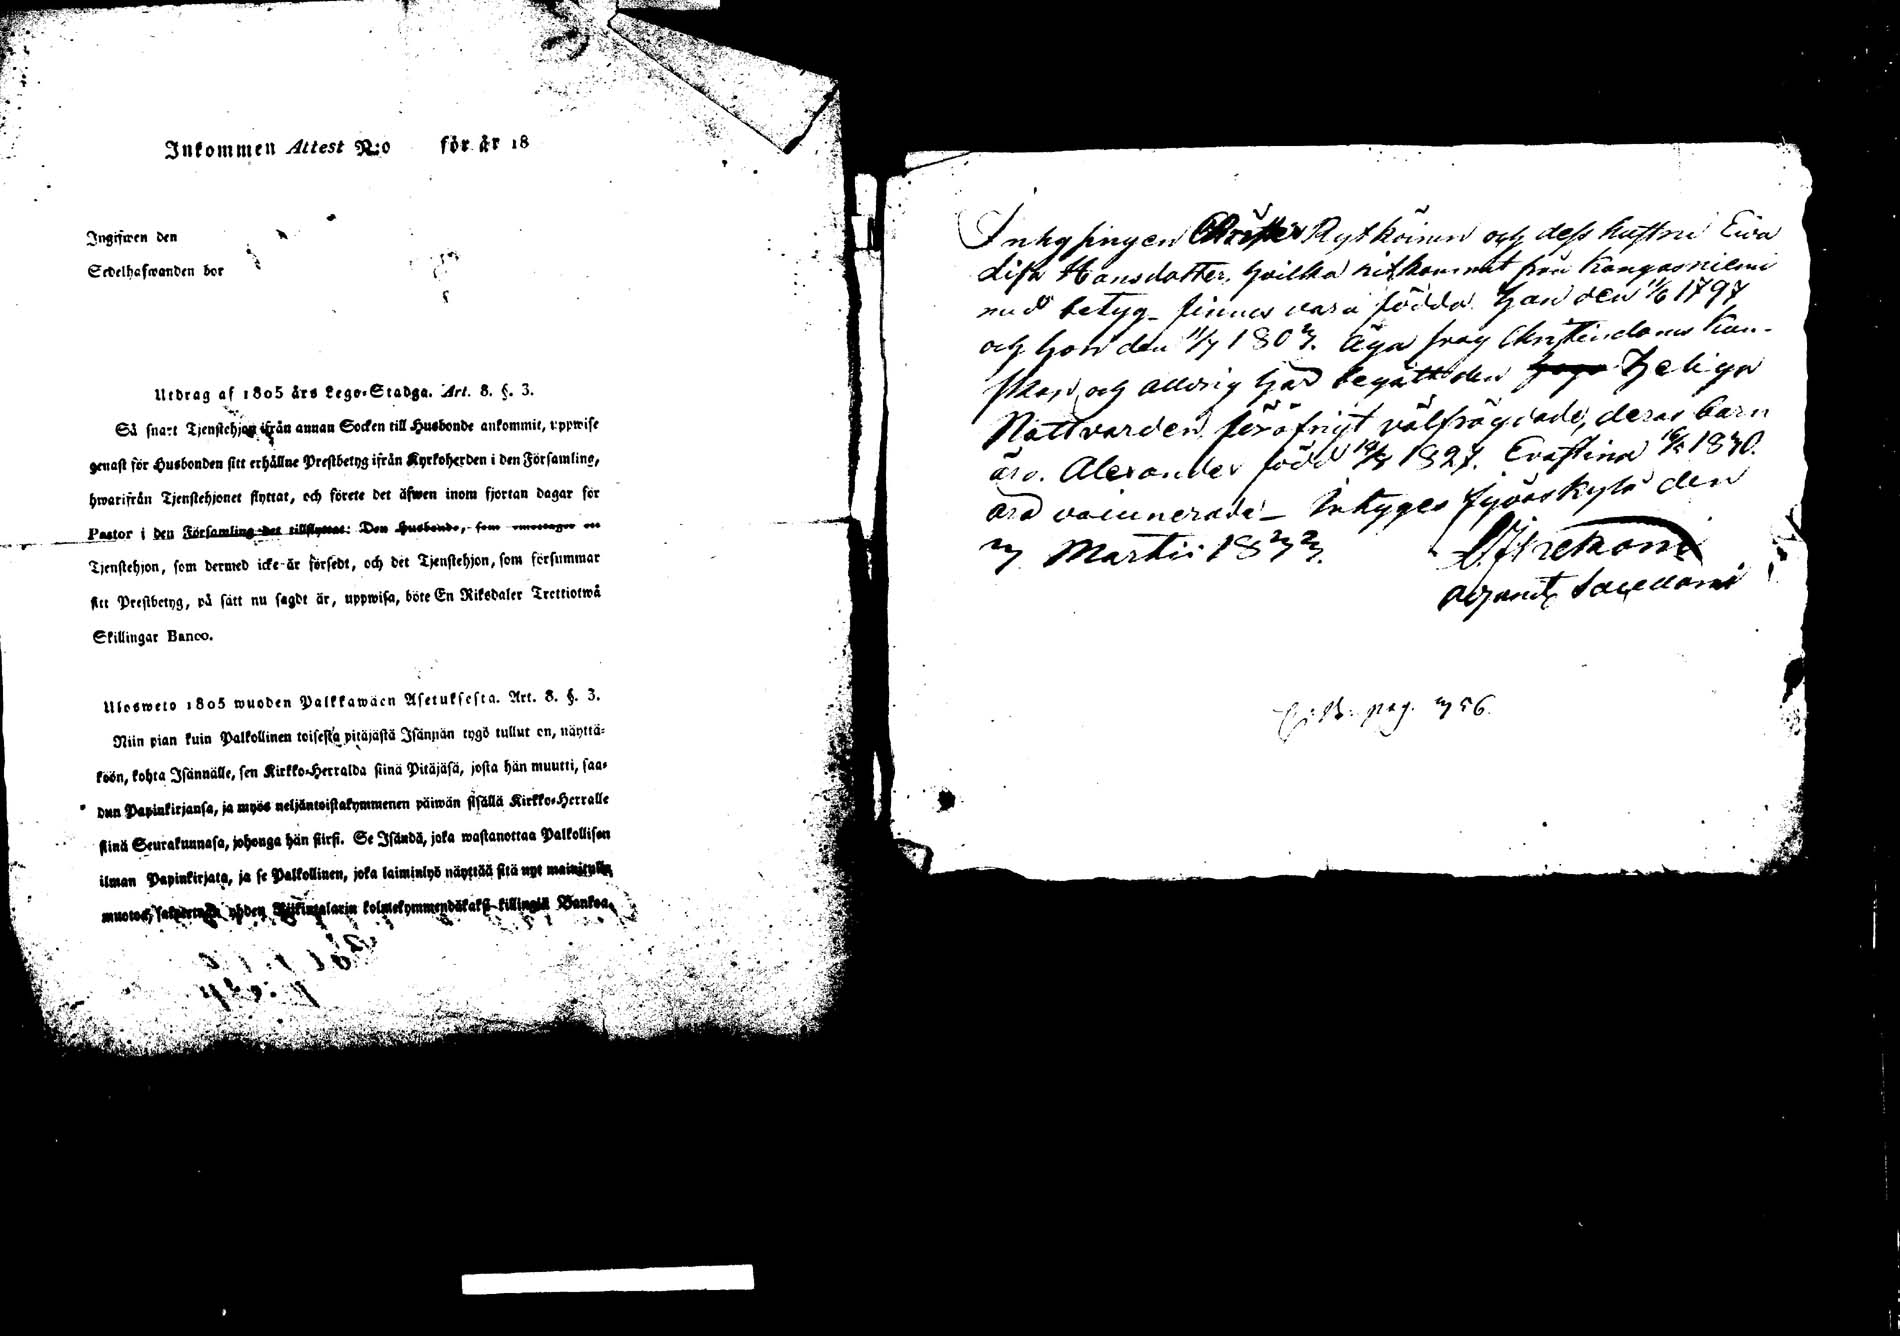 Inkommen Attest N:o för år 18
Ingifwen den
Sedelhafwanden bor
Utdrag af 1805 års Lego-Stadga. Art. 8. §. 3.
Så snart Tjenstehjon ifrån annan Socken till Husbonde ankommit, uppwise
genast för Husbonden sitt erhållne Prestbetyg ifrån Kyrkoherden i den Församling,
hwarifrån Tjenstehjonet flyttat, och förete det äfwen inom fjortan dagar för
Pastor i den Församling det tillflyttat: Den Husbonde, som emottager en
Tjenstehjon, som dermed icke är försedt, och det Tjenstehjon, som försummar
sitt Prestbetyg, på sätt nu sagdt är, uppwisa, böte En Riksdaler Trettiotwå
Skillingar Banco.
Ulosweto 1805 wuoden Palkkawäen Asetuksesta. Art. 8. §. 3.
Niin pian kuin Palkollinen toisesta pitäjästä Isännän tygö tullut on, näyttä-
köön, kohta Isännälle, sen Kirkko-Herralda siinä Pitäjäsä, josta hän muutti, saa-
dun Papinkirjansa, ja myös neljäntoistakymmenen päiwän sisällä Kirkko-Herralle
siinä Seurakunnasa, johonga hän siirsi. Se Isändä, joka wastanottaa Palkollisen
ilman Papinkirjata, ja se Palkollinen, joka laiminlyö näyttää sitä nyt mainitulla
muotoa, yhden Riikintalarin kolmekymmendäkaksi killingiä Bankoa.
Inhysingen Rytköinen och dess hustru Ewa
Lisa Hansdotter, hvilka hitkommit från Kangasniemi
med betyg finnas vara födda han den 11/6 1797
och hon den 11/7 1803. Äga svag Christendoms Kun-
skap och aldrig har begått den Heliga
Nattvarden, för öfrigt välfrägdade, deras barn
äro. Alexander född 1827. Evastina 1830.
äro vaccinerade - Intyges Jyväskylä den
3 Martii 1833.
pag. 356.